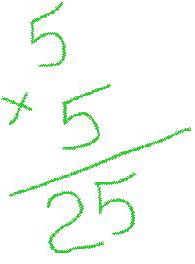 5
× 5
25